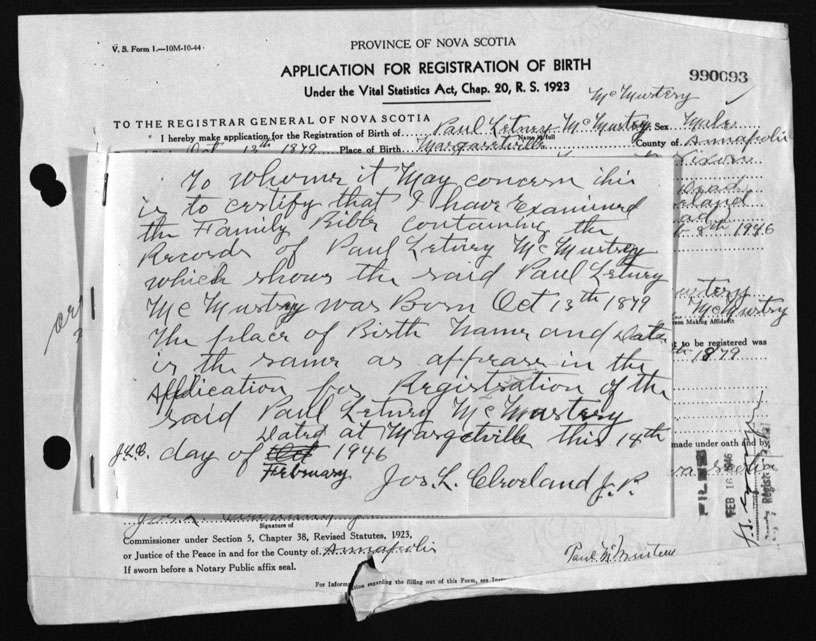 V. S. Form 1.—10M-10-44
PROVINCE OF NOVA SCOTIA
APPLICATION FOR REGISTRATION OF BIRTH
990093
Under the Vital Statistics Act, Chap. 20, R. S. 1923
McMurtery
TO THE REGISTRAR GENERAL OF NOVA SCOTIA
I hereby make application for the Registration of Birth of Paul Letney McMurtry, Sex Male
Name in full
Oct 13th 1879 Place of Birth Margaretville County of Annapolis
To Whome it May concern this
is to certify that I have Examined
the Family Bible containing the
Records of Paul Letney McMurtry
which shows the said Paul Letney
McMurtry was Born Oct 13th 1879
The place of Birth Name and Date
is the same as appears in the
Application for Registration of the
said Paul Letney McMurtery
Dated at Margetville this 14th
J.L.C. day of 1946
February
Jos. L. Cleveland J. P.
8th 1946
McMurtry
son Making Affidavit
t to be registered was
th 1879
made under oath and by
FILED
FEB 16 1946
Signature of
Commissioner under Section 5, Chapter 38, Revised Statutes, 1923,
or Justice of the Peace in and for the County of Annapolis
If sworn before a Notary Public affix seal.
For Information regarding the filling out of this Form, see